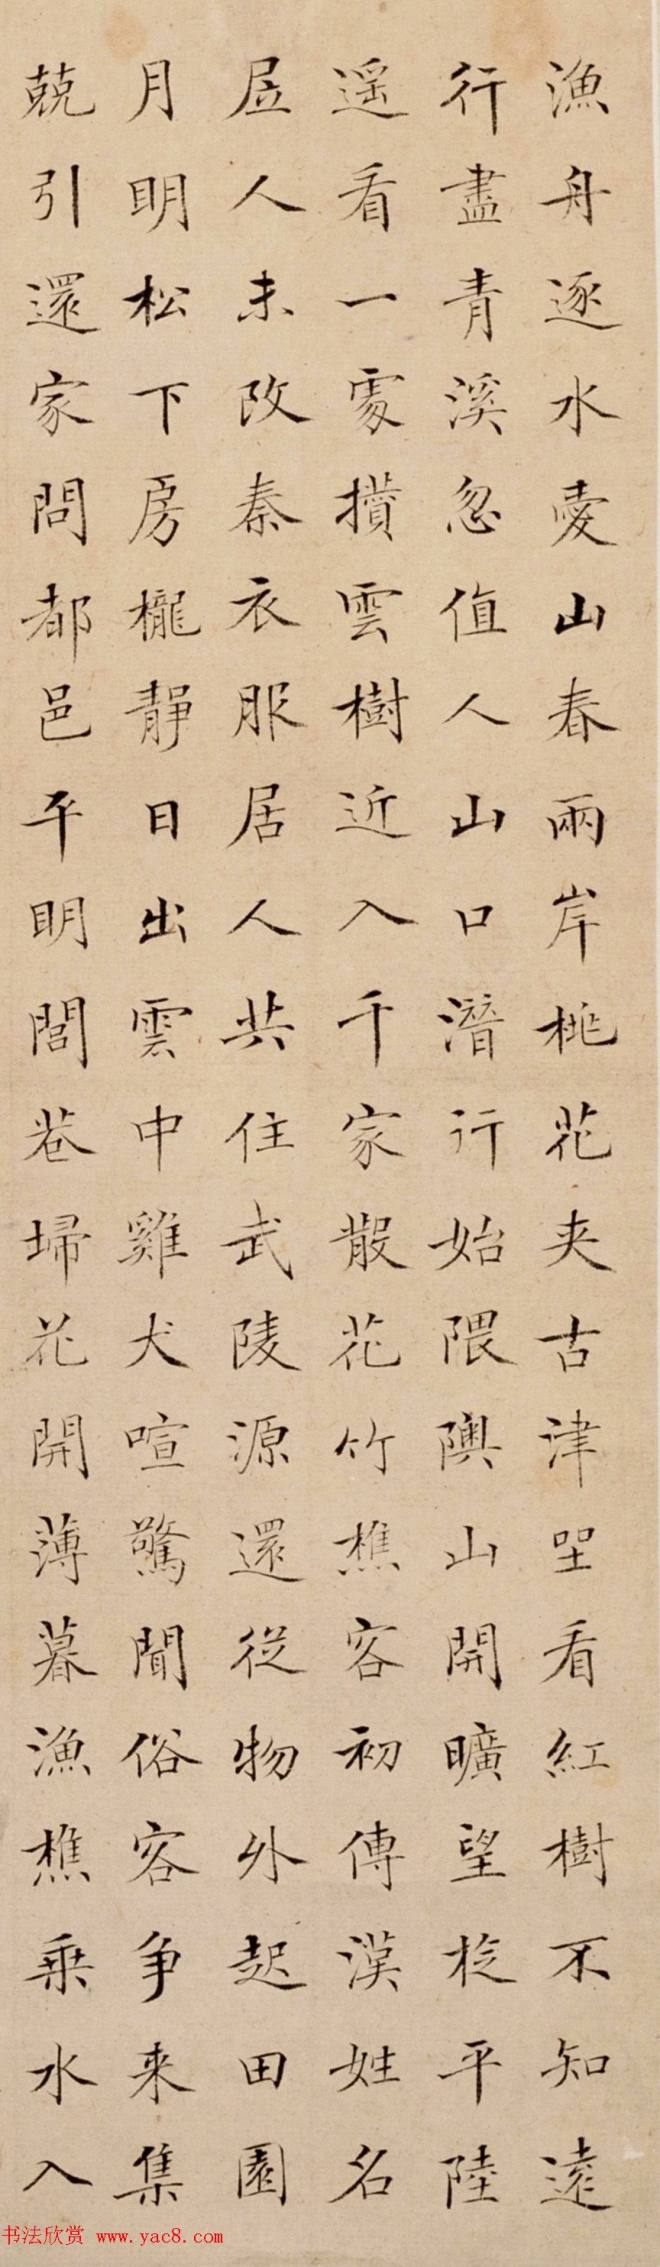 漁舟逐水愛山春兩岸桃花夾古津坐看紅樹不知遠
行盡青溪忽值人山口潛行始隈隩山開曠望旋平陸
遥看一處攢雲樹近入千家散花竹樵客初傳漢姓名
居人未改秦衣服居人共住武陵源還從物外起田園
月明松下房櫳靜日出雲中雞犬喧驚聞俗客争来集
競引還家問都邑平明閭巷埽花開薄暮漁樵乘水入
书法欣赏 www.yac8.com